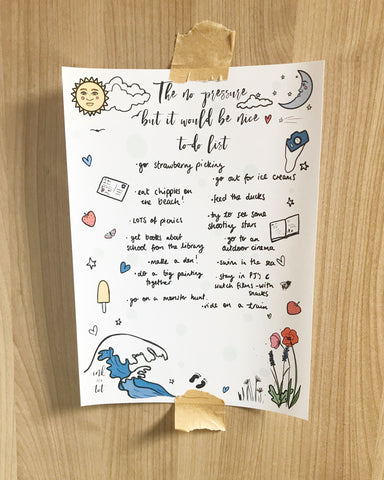 The no pressure
but it would be nice
to-do list
·go strawberry picking
·go out for ice creams
·eat chippies on
the beach!
·feed the ducks
·LOTS of picnics
·try to see some
shooting stars
·get books about
school from the library
·go to an
outdoor cinema
·make a den!
·swim in the sea
·do a big painting
together
·stay in PJ's &
watch films - with
snacks
·go on a monster hunt
·ride on a train
ink
lot